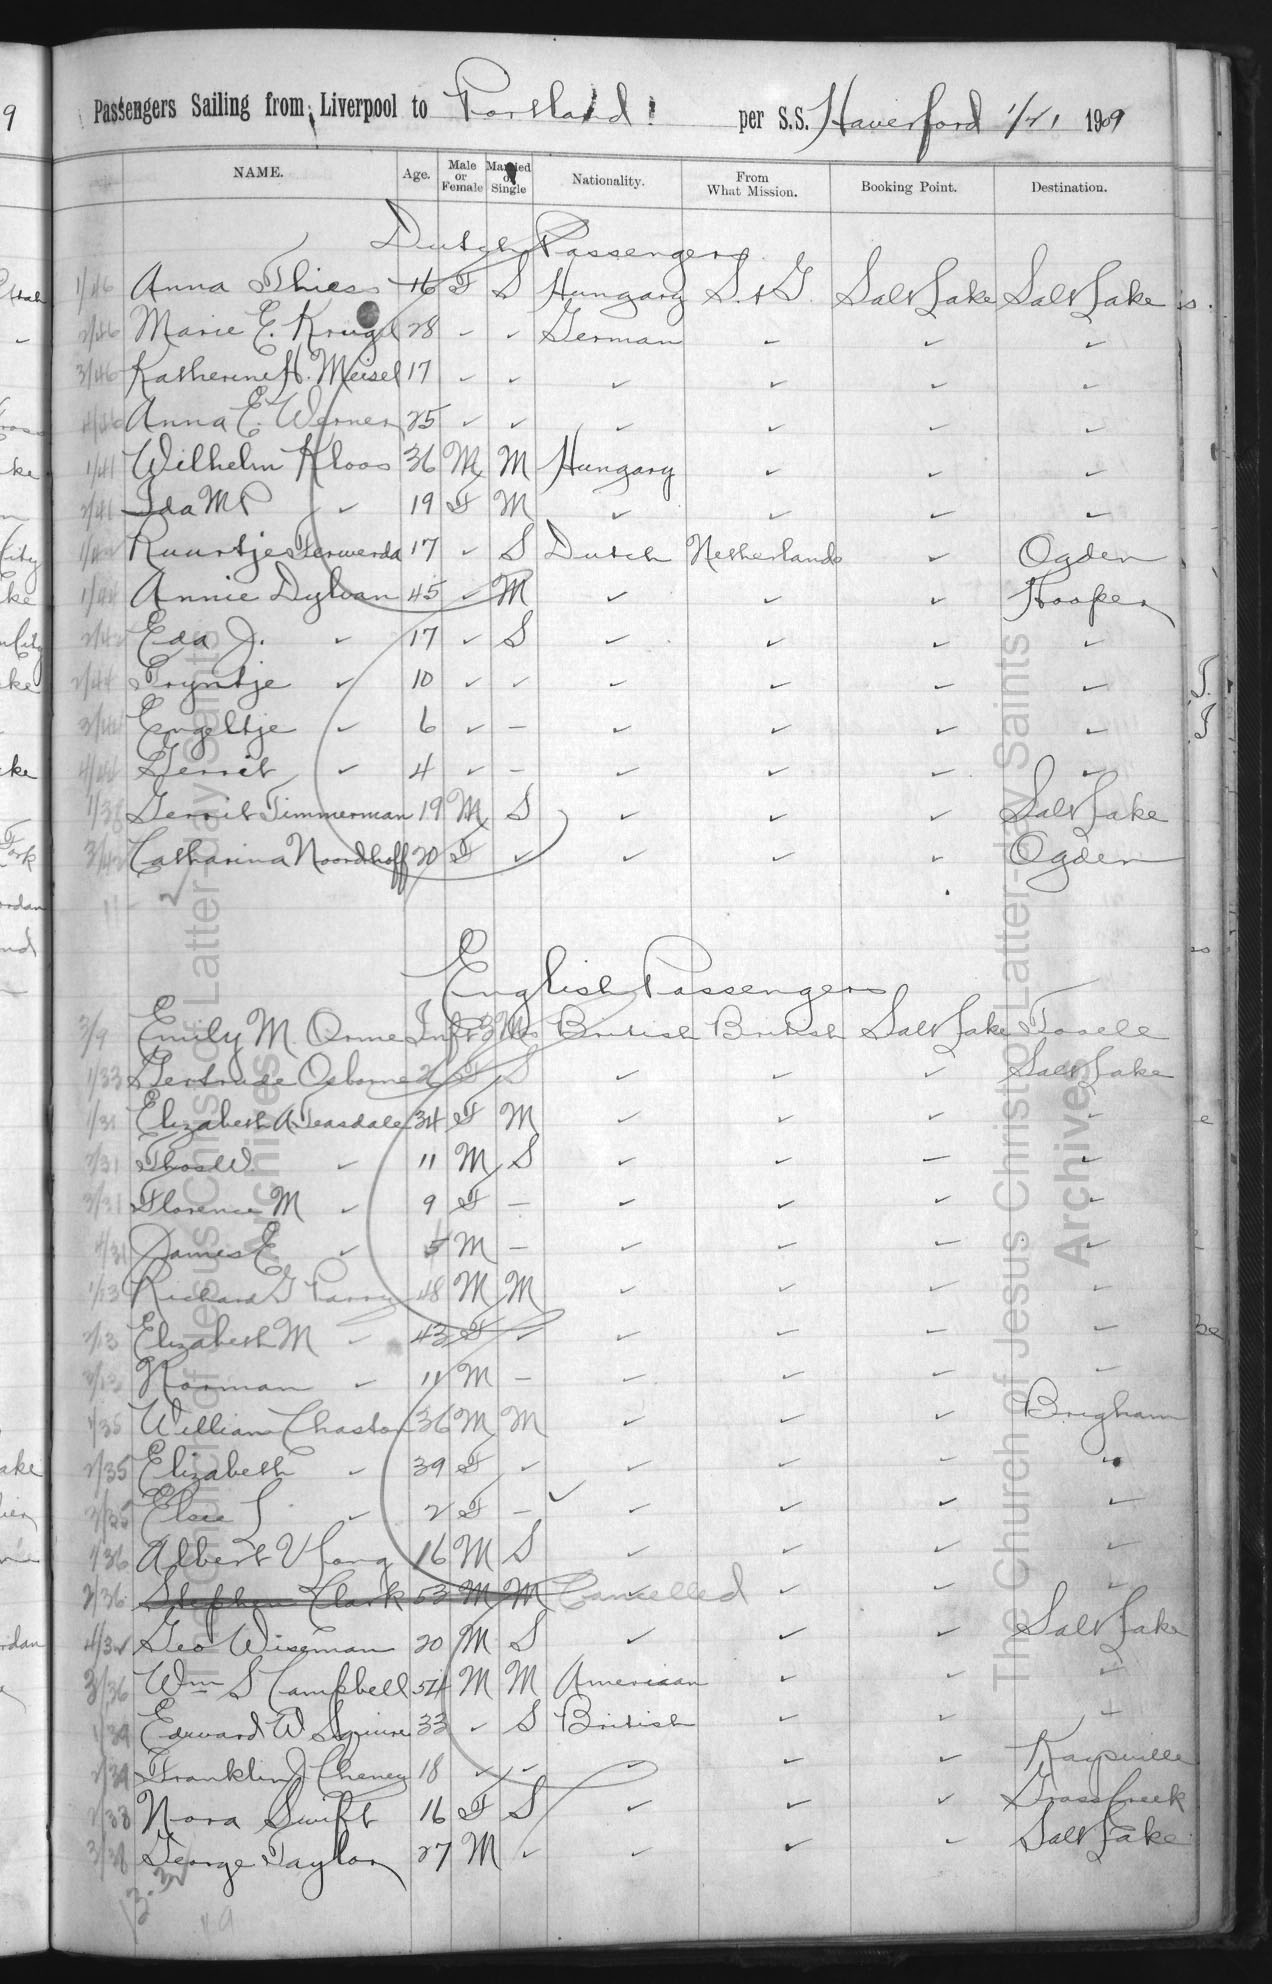 Passengers Sailing from Liverpool to Portland per S.S. Haverford 1/21 1909
NAME. Age. Male or Female Married or Single Nationality. From What Mission. Booking Point. Destination.
Dutch Passengers
1/46 Anna Thiess 16 F S Hungary S. & G. Salt Lake Salt Lake
2/46 Marie E. Krugel 28 ✓ ✓ German ✓ ✓ ✓
3/46 Katherine H. Meisel 17 ✓ ✓ ✓ ✓ ✓ ✓
4/46 Anna E. Werner 25 ✓ ✓ ✓ ✓ ✓ ✓
1/41 Wilhelm Kloos 36 M M Hungary ✓ ✓ ✓
2/41 Ida M P ✓ 19 F M ✓ ✓ ✓ ✓
Ruurtje Ferwerda 17 ✓ S Dutch Netherlands ✓ Ogden
1/44 Annie Dylvan 45 ✓ M ✓ ✓ ✓ Hooper
Eda J. ✓ 17 ✓ S ✓ ✓ ✓ ✓
2/44 Tryntje ✓ 10 ✓ ✓ ✓ ✓ ✓ ✓
3/44 Engeltje ✓ 6 ✓ – ✓ ✓ ✓ ✓
4/44 Gerrit ✓ 4 ✓ – ✓ ✓ ✓ ✓
1/38 Gerrit Timmerman 19 M S ✓ ✓ ✓ Salt Lake
3/42 Catharina Noordhoff 20 F ✓ ✓ ✓ ✓ Ogden
11
English Passengers
3/9 Emily M. Orme Inft 3 Mos British British Salt Lake Tooele
1/33 Gertrude Osborne 2 F S ✓ ✓ ✓ Salt Lake
1/31 Elizabeth A Teasdale 34 F M ✓ ✓ ✓ ✓
2/31 Thos W. ✓ 11 M S ✓ ✓ – ✓
3/31 Florence M ✓ 9 F – ✓ ✓ ✓ ✓
4/31 James E ✓ 5 M – ✓ ✓ ✓ ✓
1/13 Richard G Parry 48 M M ✓ ✓ ✓ ✓
2/13 Elizabeth M ✓ 43 F ✓ ✓ ✓ ✓ ✓
3/13 Norman ✓ 11 M – ✓ ✓ ✓ ✓
1/35 William Chaston 36 M M ✓ ✓ ✓ Brigham
2/35 Elizabeth ✓ 39 F ✓ ✓ ✓ ✓ ✓
3/35 Elsie L ✓ 2 F – ✓ ✓ ✓ ✓
1/36 Albert V Long 16 M S ✓ ✓ ✓ ✓
2/36 Stephen Clark 53 M M Cancelled ✓ ✓ ✓
4/32 Geo Wiseman 20 M S ✓ ✓ ✓ Salt Lake
3/36 Wm S Campbell 54 M M American ✓ ✓ ✓
1/39 Edward W Squires 33 ✓ S British ✓ ✓ ✓
2/39 Franklin J. Cheney 18 ✓ ✓ ✓ ✓ ✓ Kaysville
2/38 Nora Swift 16 F S ✓ ✓ ✓ Grass Creek
3/38 George Taylor 27 M ✓ ✓ ✓ ✓ Salt Lake
The Church of Jesus Christ of Latter-day Saints
Archives